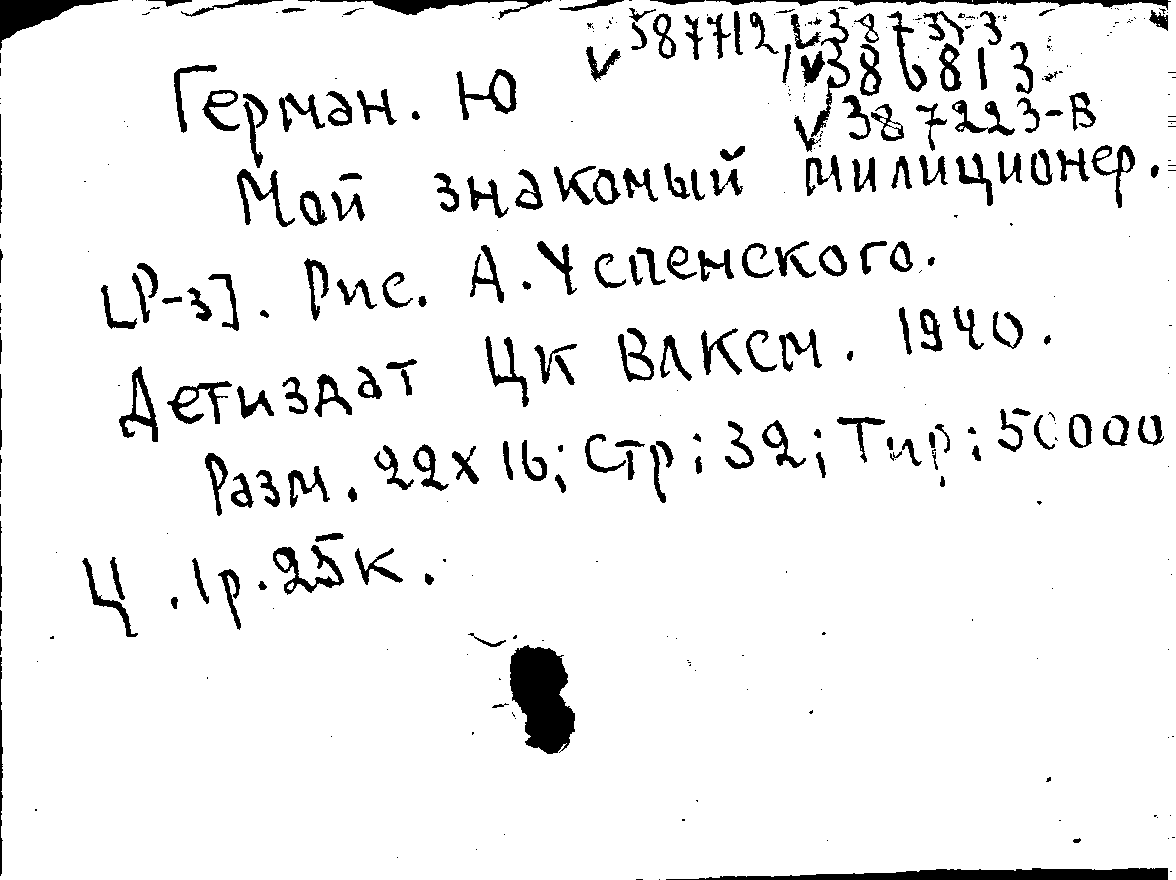 √387712, √387373
√386813
Герман. Ю
√387223-В
Мой знакомый милиционер.
[Р-з]. Рис. А. Успенского.
Детиздат ЦК ВЛКСМ. 1940.
Разм. 22х16; Стр; 32; Тир; 50000
Ц. 1р. 25к.